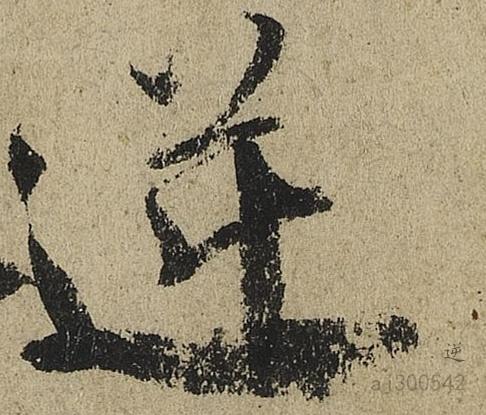 逆
逆
aj300542